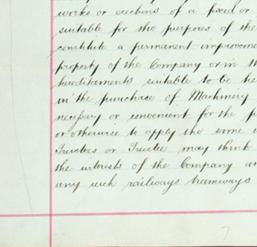 works or erections of a fixed or
suitable for the purposes of the
constitute a permanent improveme
property of the Company or in th
hereditaments suitable to be he
in the purchase of Machinery
necessary or convenient for the p
or otherwise to apply the same i
Trustees or Trustee may think
the interests of the Company an
any such railways tramways
7